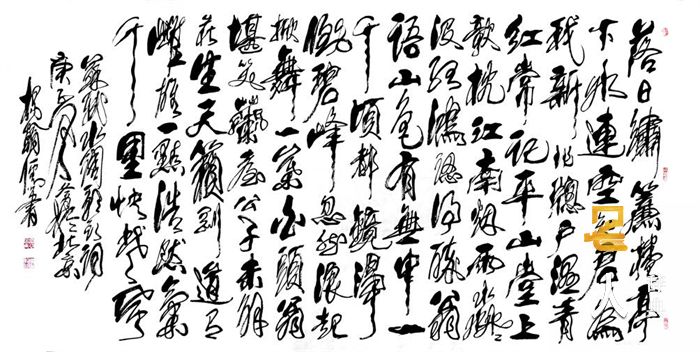 落日繡簾捲亭
下水連空知君為
我新作窗戶溼青
紅常記平山堂上
欹枕江南烟雨渺渺
没孤鴻認得醉翁
語山色有無中一
千頃都鏡淨
倒碧峰忽然浪起
掀舞一葉白頭翁
堪笑蘭臺公子未解
莊生天籟剛道有
雌雄一點浩然氣
千里快哉風
蘇軾水調歌頭詞